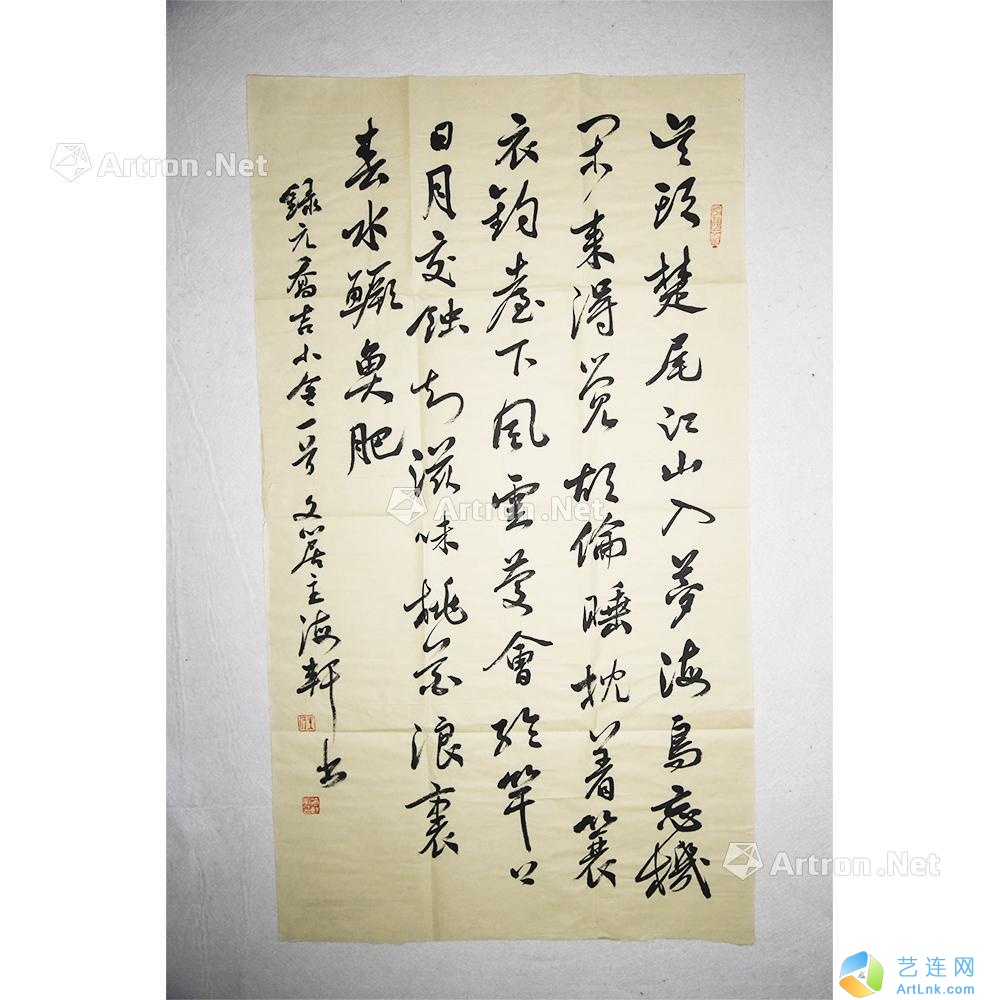 吴頭楚尾江山入夢海鳥忘機
閑來得覺胡倫睡枕着蓑
衣鈎臺下風雲慶會綸竿上
日月交蝕知滋味桃花浪裏
春水鱖魚肥
録元喬吉小令一首 文心居主海軒书
Artron.Net
Artron.Net
Artron.Net
Artron.Net
艺连网
ArtLnk.com